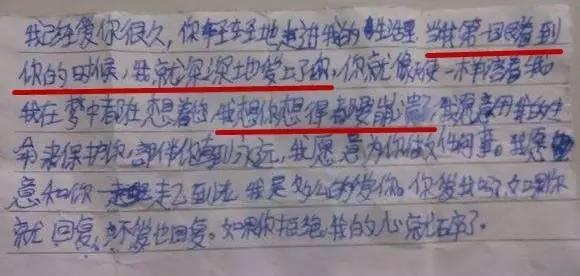 我已经爱你很久，你轻轻地走进我的生活里 当我第一回看到
你的时候，我就深深地爱上了你，你就像天使一样看着我
我在梦中都在想着你 我想你想得都要崩溃了 我愿意用我的生
命来保护你，陪伴你到永远，我愿意为你做任何事。我愿
意和你 走到 我是多么的爱你。你爱我吗？如果你
就回复，不爱也回复。如果你拒绝，我的心就碎了。